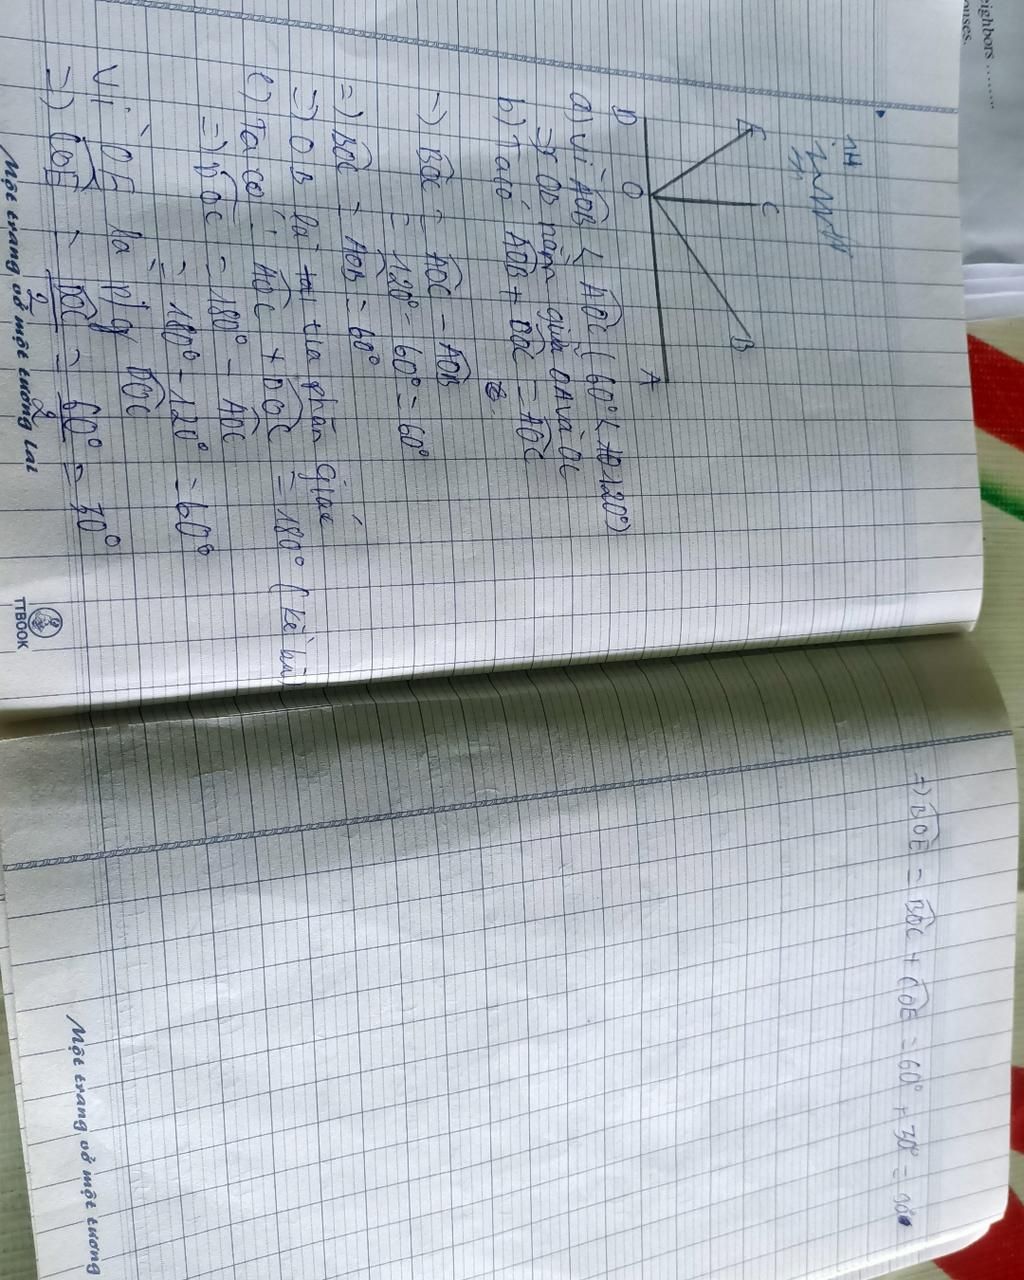 eighbors .........
ouses.
E
C
B
D
O
A
a) Vì AOB < AOC ( 60° < 120°)
=> OB nằm giữa OA và OC
b) Ta có AOB + BOC = AOC
=) BOC = AOC - AOB
= 120° - 60° = 60°
=) BOC = AOB = 60°
=) OB là tia phân giác
c) Ta có: AOC + DOC = 180° ( kề bù)
=) DOC = 180° - AOC
= 180° - 120° = 60°
Vì OE là p/g DOC
=) COE = DOC/2 = 60°/2 = 30°
Một trang vở một tương lai
TTBOOK
=) BOE = BOC + COE = 60° + 30° = 90°
Một trang vở một tương